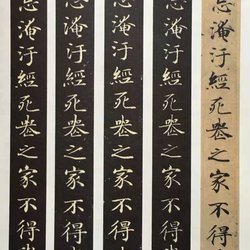 忌淹汙經死喪之家不得
忌淹汙經死喪之家不得
忌淹汙經死喪之家不得
忌淹汙經死喪之家不得
忌淹汙經死喪之家不得